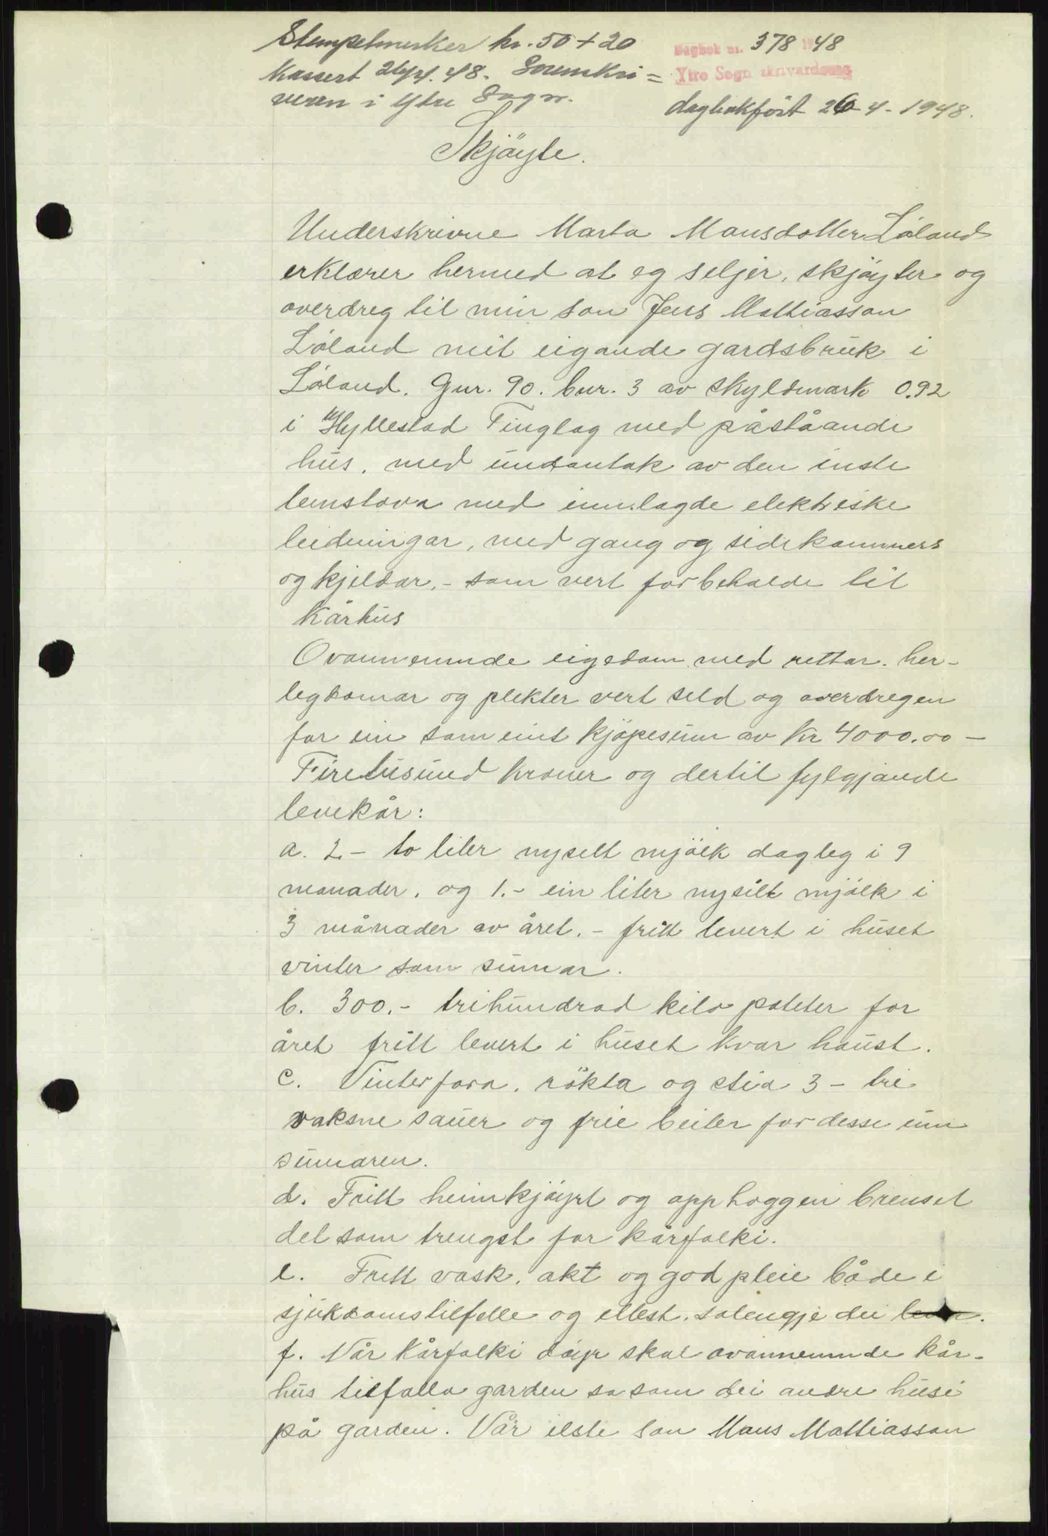 Stempelmerker kr. 50 + 20
kassert 26/4. 48. Sorenskri=
veren i Ytre Sogn.
Dagbok nr. 378 1948
Ytre Sogn skrivardøme
dagbokført 26-4-1948.
Skjöyte.
Underskrivne Marta Mansdotter Løland
erklærer hermed at eg seljer, skjöyter og
overdreg til min son Jens Mattiasson
Løland mit eigande gardsbruk i
Løland. Gnr. 90. bnr. 3 av skyldmark 0.92
i Hyllestad Tinglag med påståande
hus, med undantak av den inste
lemstova med innlagde elektriske
leidningar, med gang og sidekammers
og kjeldar, - som vert forbeholde til
Kårhus
Ovannemnde eigedom med rettar. her-
legdomar og plekter vert seld og overdregen
for ein sameint kjöpesum av Kr 4000.00 -
Firetusund kroner og dertil fylgjande
levekår:
a. 2 - to liter nysilt mjölk dagleg i 9
månader, og 1. - ein liter nysilt mjölk i
3 månader av året. - fritt levert i huset
vinter som sumar.
b. 300. - trihundrad kilo poteter for
året fritt levert i huset kvar haust.
c. Vinterfora, rökta og stia 3 - tri
vaksne sauer og frie beiter for desse um
sumaren.
d. Fritt heimkjöyrt og opphoggen brensel
det som trengst for kårfolki.
e. Fritt vask, akt og god pleie både i
sjukdomstilfelle og ellest. solengje dei lever.
f. Når kårfolki döyr skal ovannemnde kår-
hus tilfalla garden so som dei andre husi
på garden. Vår elste son Mans Mattiasson